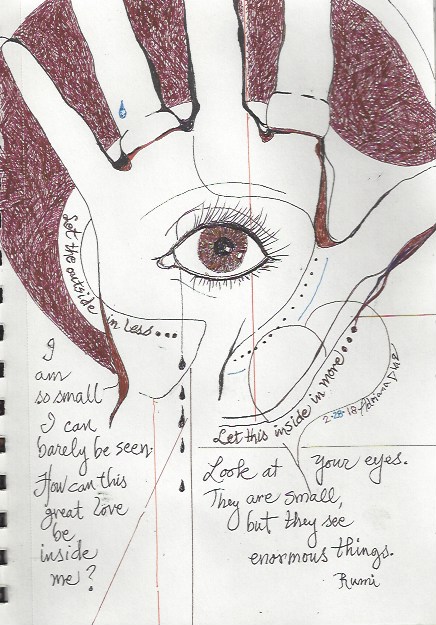 Let the outside in less...
I
am
so small
I can
barely be seen.
How can this
great love
be
inside
me?
Let this inside in more...
2-28-18 Adriana Díaz
Look at your eyes.
They are small,
but they see
enormous things.
Rumi